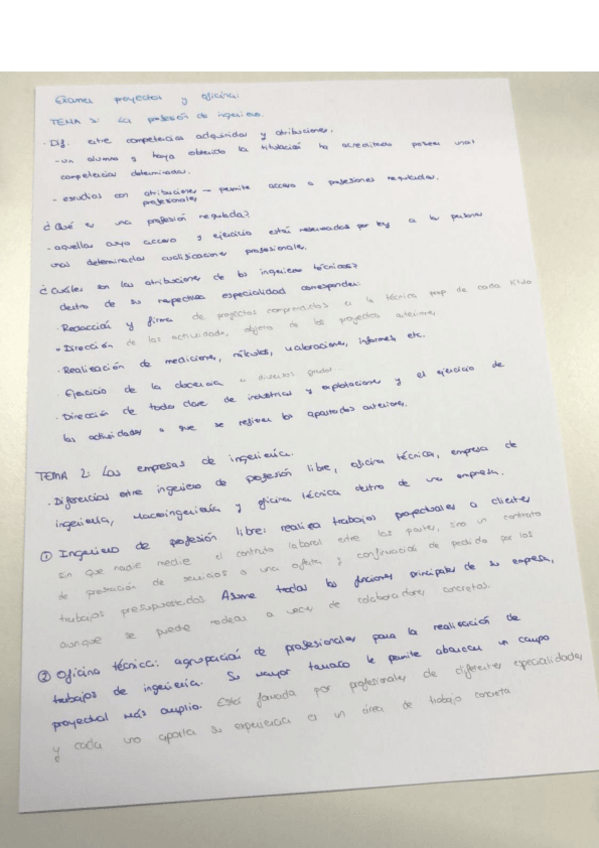 Examen proyectos y oficina:
TEMA 1: La profesión de ingeniero.
· Dif. entre competencias adquiridas y atribuciones.
- un alumno q haya obtenido la titulación ha acreditado poseer unas
competencias determinadas.
- estudios con atribuciones profesionales → permite acceso a profesiones reguladas.
¿Qué es una profesión regulada?
- aquellas cuyo acceso y ejercicio están reservados por ley a las personas
unas determinadas cualificaciones profesionales.
¿Cuáles son las atribuciones de los ingenieros técnicos?
dentro de su respectiva especialidad corresponden:
· Redacción y firma de proyectos comprendidos a la técnica prop de cada título
· Dirección de las actividades, objeto de los proyectos anteriores,
· Realización de mediciones, cálculos, valoraciones, informes, etc.
· Ejercicio de la docencia a diversos grados...
· Dirección de toda clase de industrias y explotaciones y el ejercicio de
las actividades a que se refieren los apartados anteriores.
TEMA 2: Las empresas de ingeniería.
· Diferencias entre ingeniero de profesión libre, oficina técnica, empresa de
ingeniería, macroingeniería y oficina técnica dentro de una empresa.
① Ingeniero de profesión libre: realiza trabajos proyectuales a clientes
sin que nadie medie el contrato laboral entre las partes, sino un contrato
de prestación de servicios o una oferta y confirmación de pedido por los
trabajos presupuestados. Asume todas las funciones principales de su empresa,
aunque se puede rodear a veces de colaboradores concretos.
② Oficina técnica: agrupación de profesionales para la realización de
trabajos de ingeniería. Su mayor tamaño le permite abarcar un campo
proyectual más amplio. Está formada por profesionales de diferentes especialidades
y cada uno aporta su experiencia en un área de trabajo concreta